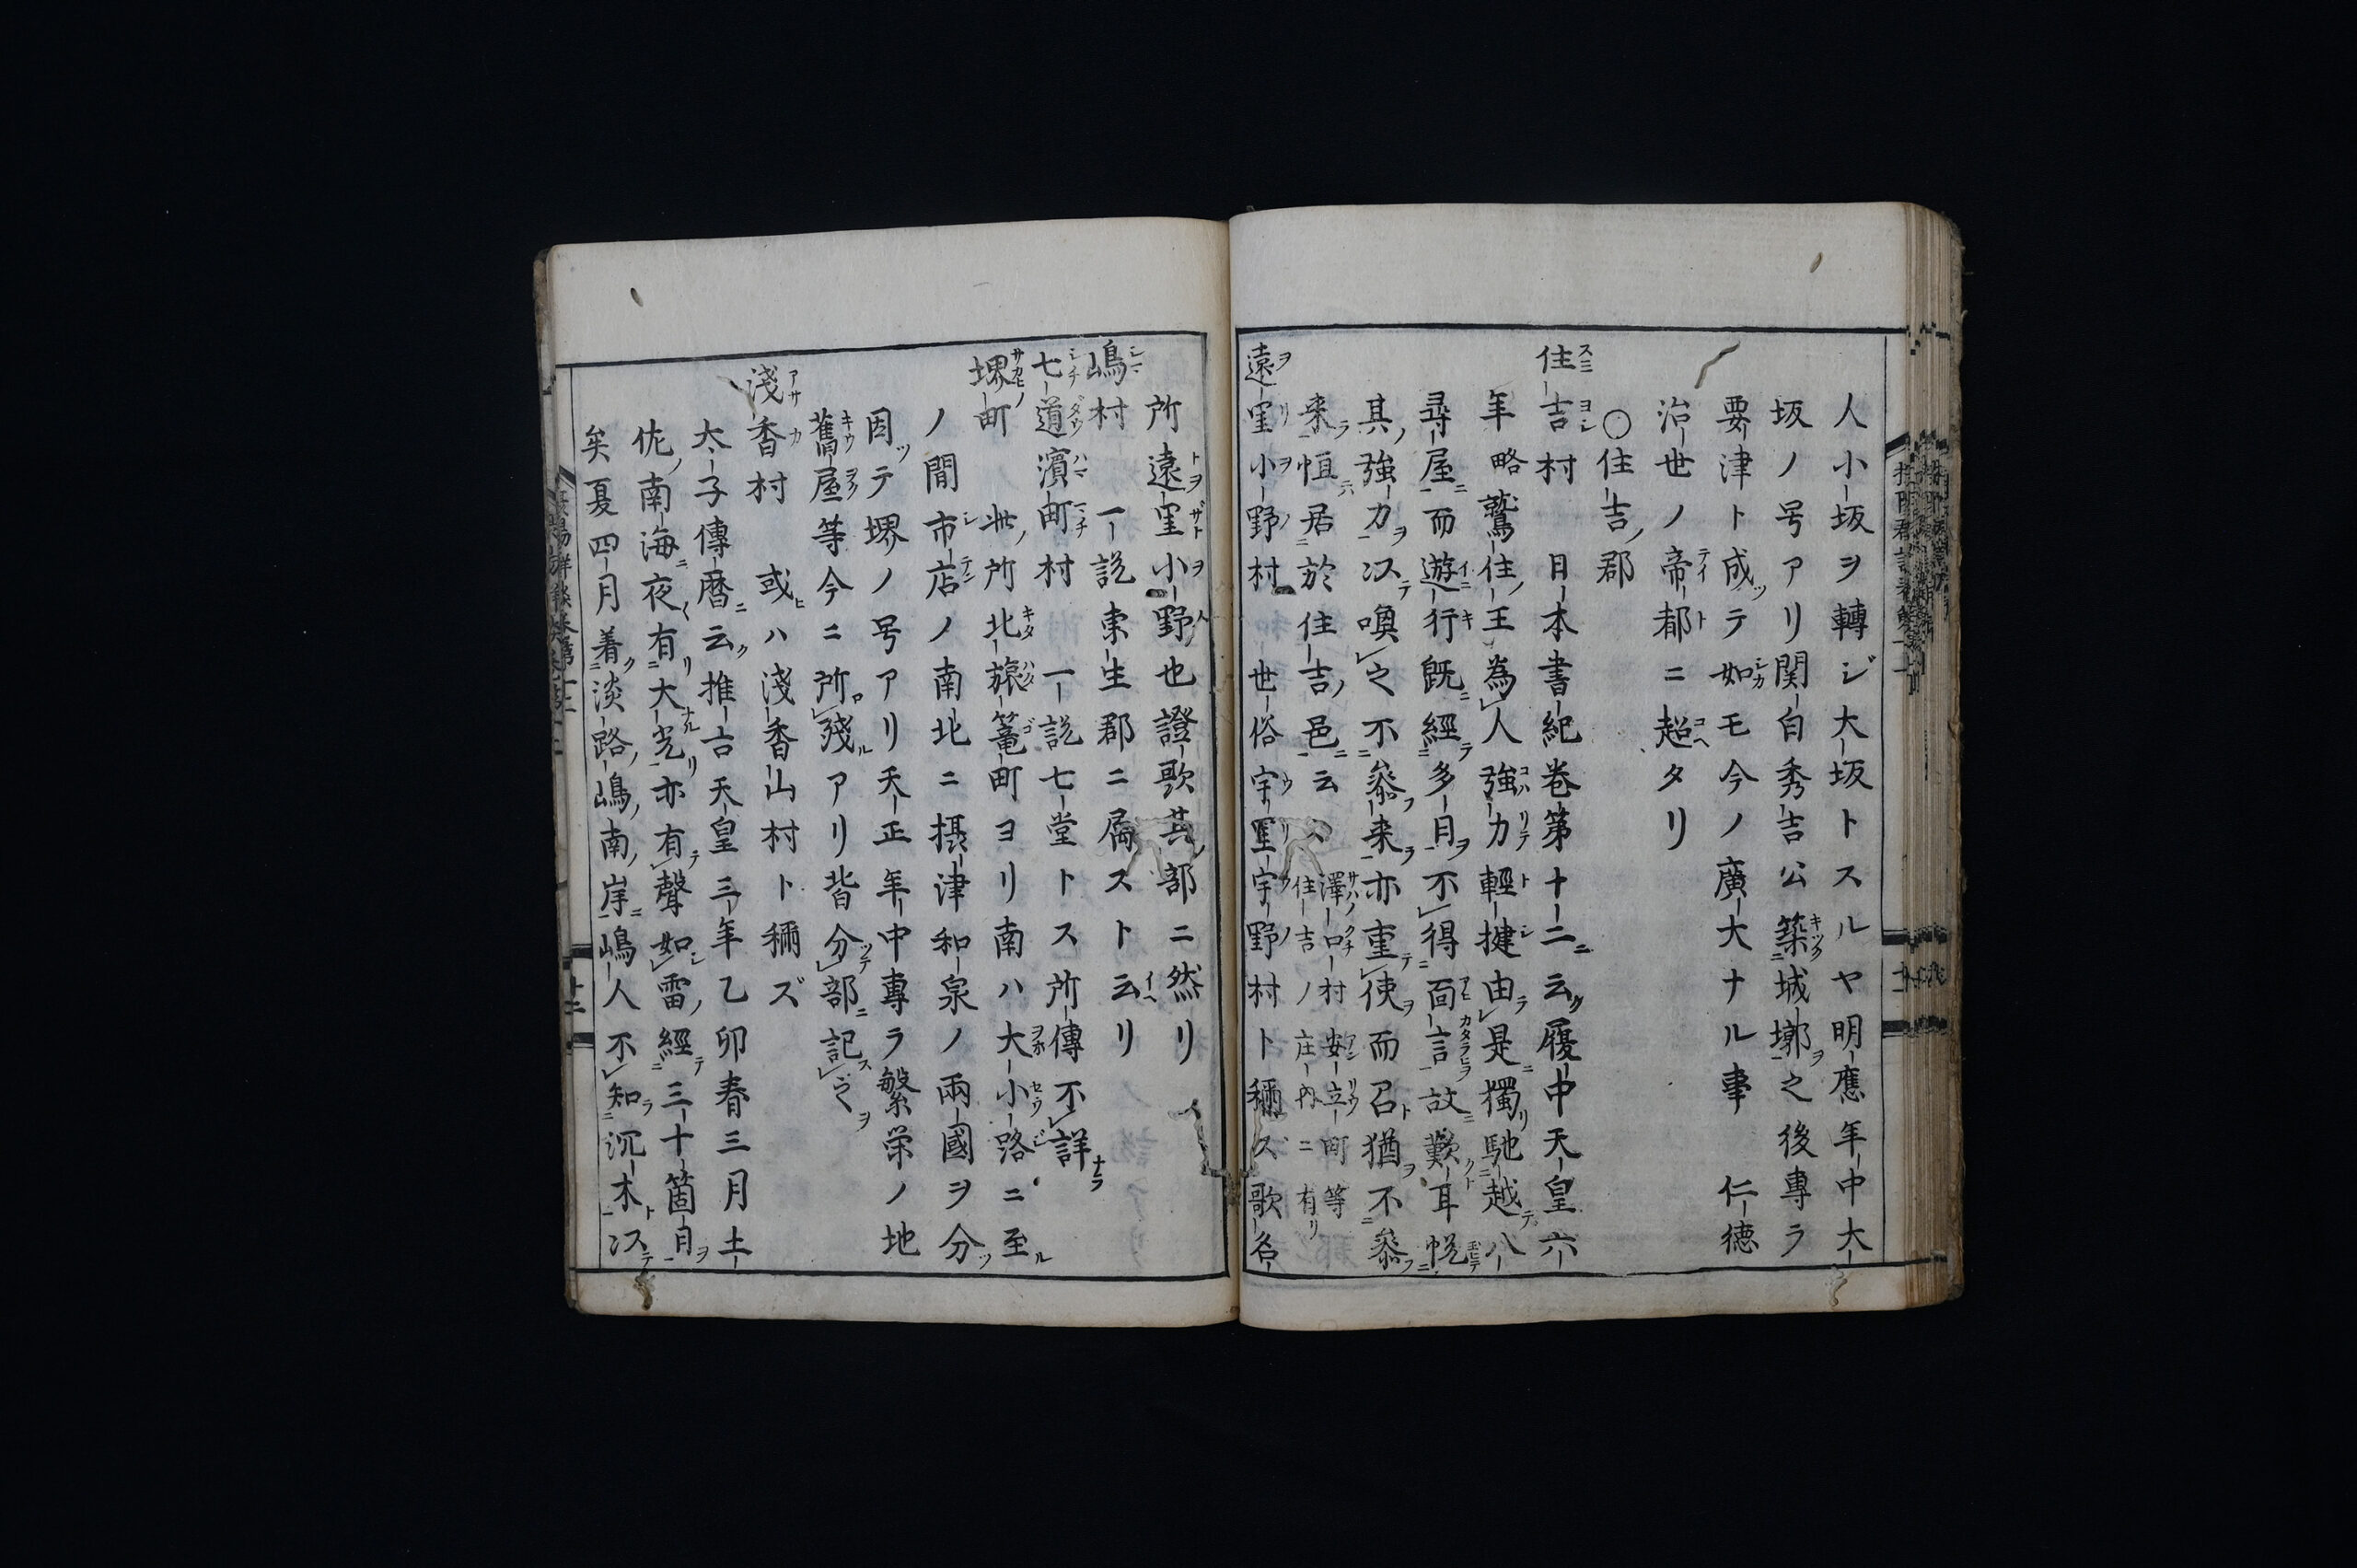 人小坂ヲ轉ジ大坂トスルヤ明應年中大
坂ノ号アリ関白秀吉公築城墎之後專ラ
要津ト成テ如モ今ノ廣大ナル事 仁徳
治世ノ帝都ニ超タリ
○住吉郡
住吉村 日本書紀巻第十二云履中天皇六
年略鷲住王為人強力輕捷由是獨馳越八
尋屋而遊行既經多日不得面言故歎耳恱
其強力以喚之不叅来亦重使而召猶不叅
来恒居於住吉邑云
澤口村 安立町等
住吉ノ庄内ニ有リ
遠里小野村 世俗宇里宇野村ト稱ス歌名
所遠里小野也證歌其部ニ然リ
嶋村 一説東生郡ニ属スト云リ
七道濱町村 一説七堂トス所傳不詳
堺町 此所北旅篭町ヨリ南ハ大小路ニ至
ノ間市店ノ南北ニ摂津和泉ノ兩國ヲ分
因テ堺ノ号アリ天正年中專ラ繁栄ノ地
舊屋等今ニ所殘アリ皆分部記之
淺香村 或ハ淺香山村ト稱ズ
太子傳暦云推古天皇三年乙卯春三月土
佐南海夜有大光亦有聲如雷經三十箇日
矣夏四月着淡路嶋南岸嶋人不知沉木以